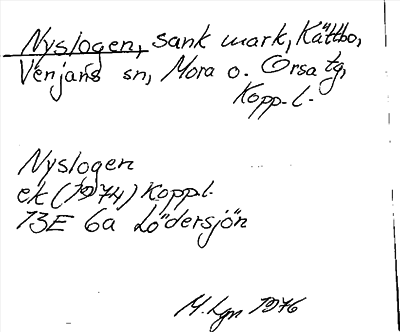 Nyslogen, sank mark, Kättbo,
Venjans sn, Mora o. Orsa tg,
Kopp. l.
Nyslogen
ek (1974) Koppl.
13E 6a Lödersjön
M. Lgn 1976